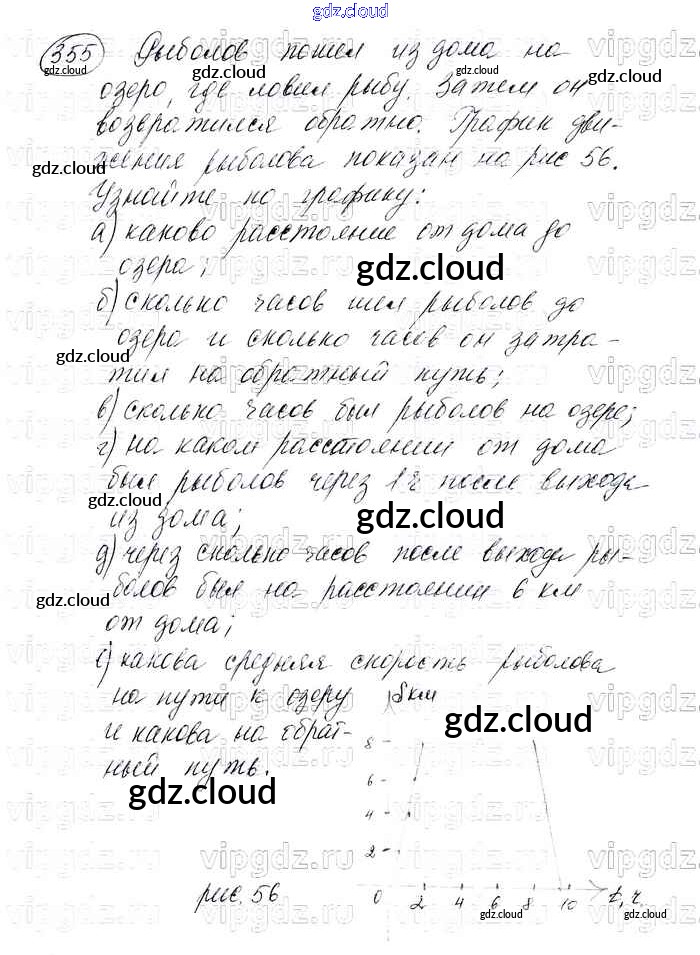 gdz.cloud
355 Рыболов пошел из дома на
озеро, где ловил рыбу. Затем он
возвратился обратно. График дви-
жения рыболова показан на рис 56.
Узнайте по графику:
а) каково расстояние от дома до
озера;
gdz.cloud
б) сколько часов шел рыболов до
озера и сколько часов он затра-
тил на обратный путь;
в) сколько часов был рыболов на озере;
г) на каком расстоянии от дома
был рыболов через 1 ч после выхода
из дома;
gdz.cloud
д) через сколько часов после выхода ры-
болов был на расстоянии 6 км
от дома;
е) какова средняя скорость рыболова
на пути к озеру
и какова на обрат-
ный путь.
gdz.cloud
S км
gdz.cloud
8
6
4
2
0 2 4 6 8 10 t, ч.
рис. 56
gdz.cloud